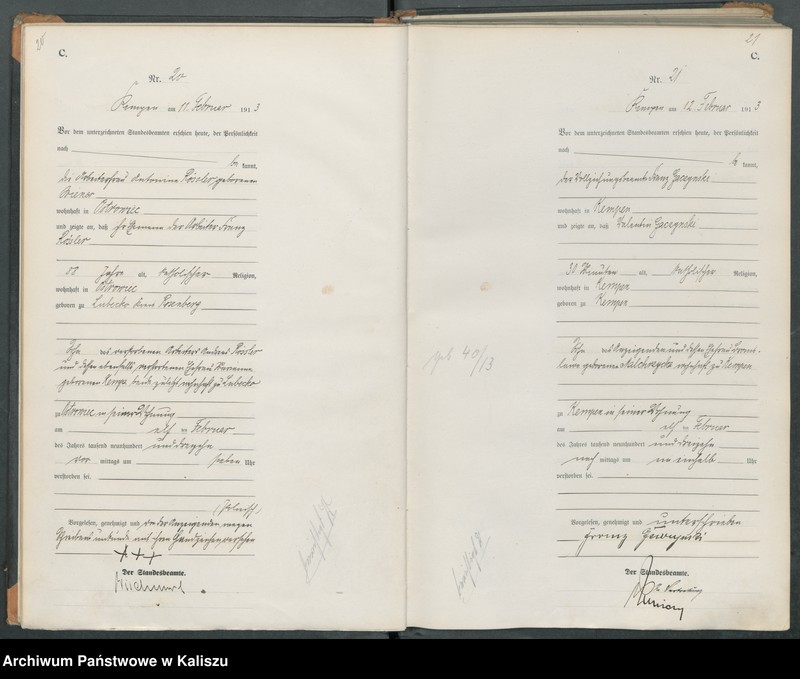 20
C.
Nr. 20
Kempen am 11. Februar 1913
Vor dem unterzeichneten Standesbeamten erschien heute, der Persönlichkeit
nach
be kannt,
die Arbeiterfrau Antonina Rössler geborenen
wohnhaft in Ostrowiec
und zeigte an, daß ihr Ehemann der Arbeiter Franz
Rössler
58 Jahre alt, katholischer Religion,
wohnhaft in Ostrowiec
geboren zu Lubecko Kreis Rosenberg
Sohn des verstorbenen Arbeiters Andreas Rossler
und dessen ebenfalls verstorbenen Ehefrau Marianna
geborenen Kempa beide zuletzt wohnhaft zu Lubecko
zu Ostrowiec in seiner Wohnung
am elf ten Februar
des Jahres tausend neunhundert und dreizehn
vor mittags um sieben Uhr
verstorben sei.
Vorgelesen, genehmigt und von der Anzeigenden wegen
Schreibensunkunde mit ihren Handzeichen versehen
+++
Der Standesbeamte.
21
C.
Nr. 21
Kempen am 12. Februar 1913
Vor dem unterzeichneten Standesbeamten erschien heute, der Persönlichkeit
nach
be kannt,
der Vollziehungsbeamte Franz
wohnhaft in Kempen
und zeigte an, daß Valentin
30 Minuten alt, katholischer Religion,
wohnhaft in Kempen
geboren zu Kempen
Sohn des Anzeigenden und dessen Ehefrau Bronis-
lawa geborenen wohnhaft zu Kempen
zu Kempen in seiner Wohnung
am elf ten Februar
des Jahres tausend neunhundert und dreizehn
nach mittags um ein einhalb Uhr
verstorben sei.
Vorgelesen, genehmigt und unterschrieben
Franz
Der Standesbeamte.
In Vertretung
Geb 40/13
Archiwum Państwowe w Kaliszu